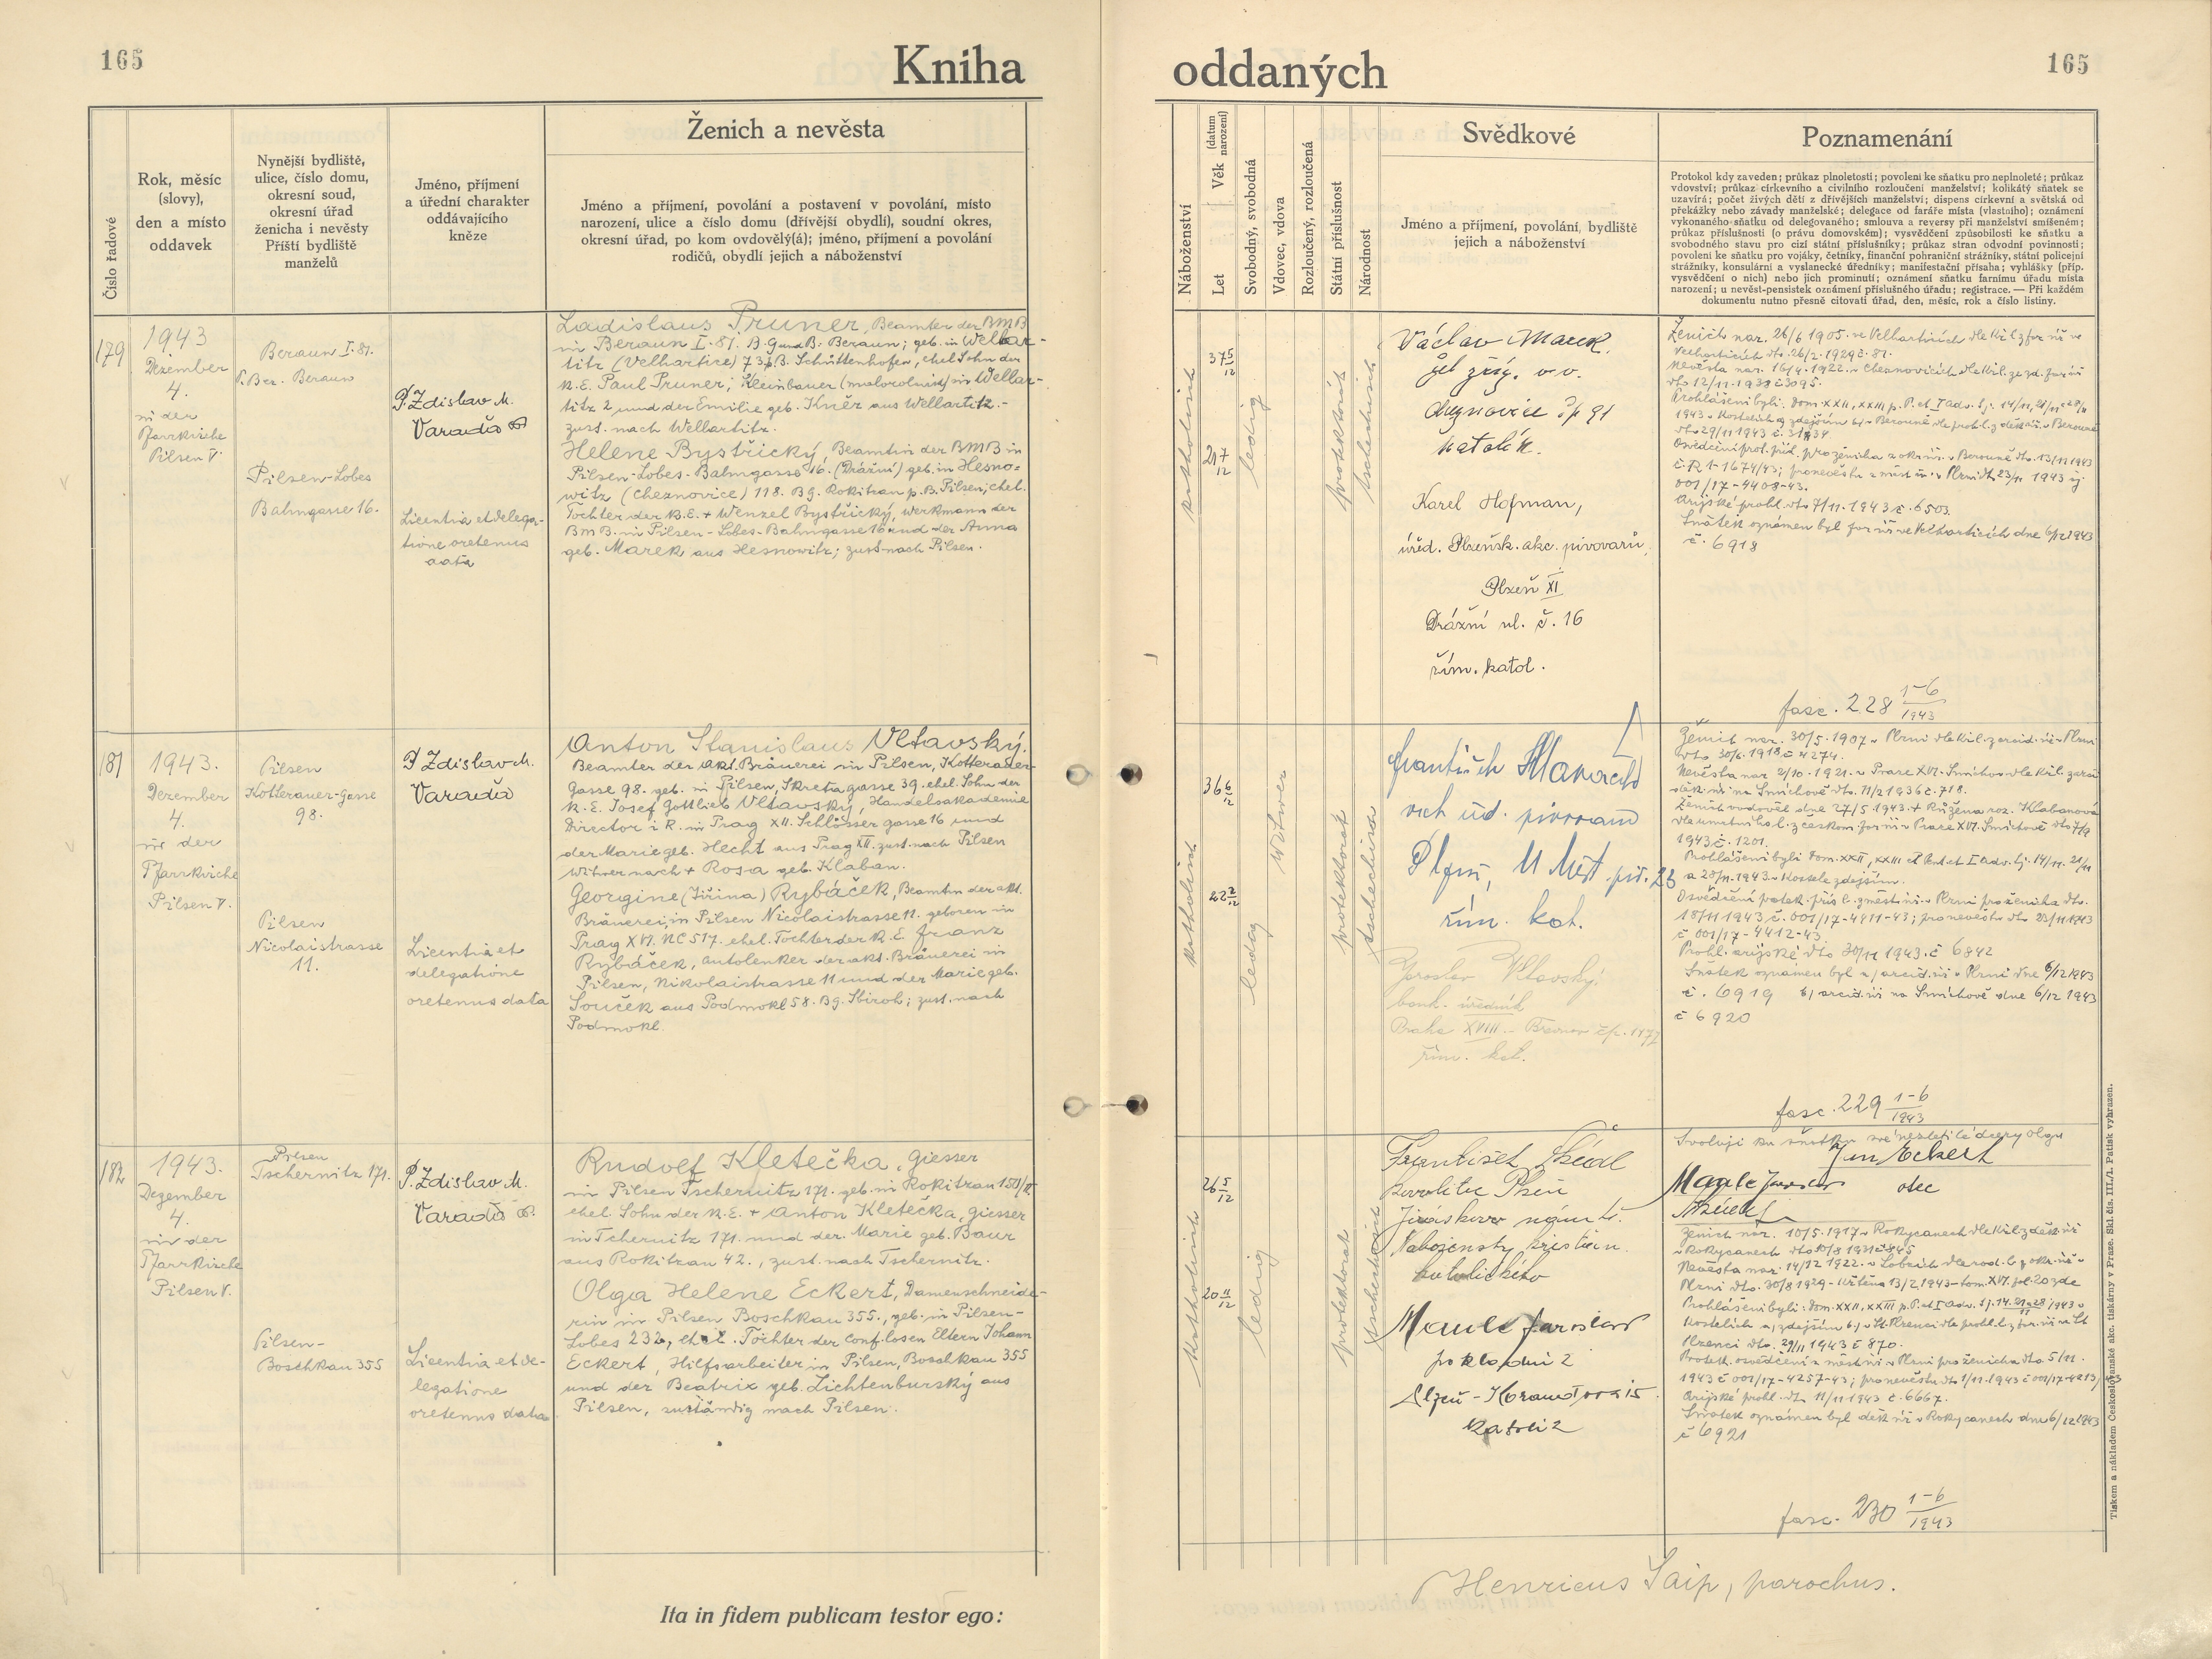 165
Kniha
oddaných
165
Číslo řadové
Rok, měsíc
(slovy),
den a místo
oddavek
Nynější bydliště,
ulice, číslo domu,
okresní soud,
okresní úřad
ženicha i nevěsty
Příští bydliště
manželů
Jméno, příjmení
a úřední charakter
oddávajícího
kněze
Ženich a nevěsta
Jméno a příjmení, povolání a postavení v povolání, místo
narození, ulice a číslo domu (dřívější obydlí), soudní okres,
okresní úřad, po kom ovdovělý(á); jméno, příjmení a povolání
rodičů, obydlí jejich a náboženství
Náboženství
Věk (datum narození)
Let
Svobodný, svobodná
Vdovec, vdova
Rozloučený, rozloučená
Státní příslušnost
Národnost
Svědkové
Jméno a příjmení, povolání, bydliště
jejich a náboženství
Poznamenání
Protokol kdy zaveden; průkaz plnoletosti; povolení ke sňatku pro neplnoleté; průkaz
vdovství; průkaz církevního a civilního rozloučení manželství; kolikátý sňatek se
uzavírá; počet živých dětí z dřívějších manželství; dispens církevní a světská od
překážky nebo závady manželské; delegace od faráře místa (vlastního); oznámení
vykonaného sňatku od delegovaného; smlouva a reversy při manželství smíšeném;
průkaz příslušnosti (o právu domovském); vysvědčení způsobilosti ke sňatku a
svobodného stavu pro cizí státní příslušníky; průkaz stran odvodní povinnosti;
povolení ke sňatku pro vojáky, četníky, finanční pohraniční strážníky, státní policejní
strážníky, konsulární a vyslanecké úředníky; manifestační přísaha; vyhlášky (příp.
vysvědčení o nich) nebo jich prominutí; oznámení sňatku farnímu úřadu místa
narození; u nevěst-pensistek oznámení příslušného úřadu; registrace. — Při každém
dokumentu nutno přesně citovati úřad, den, měsíc, rok a číslo listiny.
179
1943
Dezember
4.
in der
Pfarrkirche
Pilsen V.
Beraun I. 81.
P. Bez. Beraun
Pilsen-Lobes
Bahngasse 16.
P. Zdislav M.
Varada
Licentia et delega-
tione oretenus
data
Ladislaus Pruner, Beamter der BMB
in Beraun I. 81. B. G und B. Beraun; geb. in Wellar-
titz (Velhartice) 73 p. B. Schüttenhofen, ehel Sohn der
K. E. Paul Pruner, Kleinbauer (malorolník) in Wellar-
titz 2 und der Emilie geb. Kněz aus Wellartitz.-
zust. nach Wellartitz.
Helene Bystřický, Beamtin der BMB in
Pilsen-Lobes-Bahngasse 16. (Drážní) geb. in Hesno-
witz (Cheznovice) 118. BG. Rokitzan p. B. Pilsen, ehel.
Tochter der K. E. + Wenzel Bystřický, Werkmann der
BMB. in Pilsen-Lobes-Bahngasse 16 und der Anna
geb. Marek aus Hesnowitz; zust. nach Pilsen.
katholisch
37 5/12
21 7/12
ledig
protektorat
tschechisch
Václav Marek.
žel. zříz. v. v.
Cheznovice čp 91
katolík.
Karel Hofman,
úřed. Plzeňsk. akc. pivovarů,
Plzeň XI
Drážní ul. č. 16
řím. katol.
Ženich nar. 26/6 1905. ve Velharticích dle kř. l. z far. úř. ve
Velharticích dto. 26/2. 1929 č. 81.
Nevěsta nar. 16/4. 1922. v Cheznovicích dle kř. l. ze zd. far. úř.
dto 12/11. 1938 č 3095.
č. 6918
fasc. 228 1-6/1943
181
1943.
Dezember
4.
in der
Pfarrkirche
Pilsen V.
Pilsen
Kotterauer-Gasse
98.
Pilsen
Nicolaistrasse
11.
P Zdislav M.
Varada
Licentia et
delegatione
oretenus data
Anton Stanislaus Vltavský.
Beamter der akt. Bräuerei in Pilsen, Kotterauer-
Gasse 98. geb. in Pilsen, Skretagasse 39. ehel. Sohn der
K. E. Josef Gottlieb Vltavský, Handelsakademie
Director i R. in Prag XII. Schlösser gasse 16 und
der Marie geb. Hecht aus Prag XII. zust. nach Pilsen
Witwer nach + Rosa geb. Klaban.
Georgine (Jiřina) Rybáček, Beamtin der akt.
Bräuerei, in Pilsen Nicolaistrasse 11. geboren in
Prag XVI. NC 517. ehel. Tochter der K. E. Franz
Rybáček, Autolenker der akt. Bräuerei in
Pilsen, Nikolaistrasse 11 und der Marie geb.
Souček aus Podmokl 58. BG. Sbiroh; zust. nach
Podmokl.
katholisch
36 6/12
22 2/12
Witwer
ledig
protektorat
tschechisch
František
vrch úř. pivovaru
Plzeň, U Měst. piv. 23
řím. kat.
Jaroslav Vltavský
bank. úředník
Praha XVIII. - Břevnov čp. 1477
řím. kat.
Ženich nar. 30/5. 1907 v Plzni dle kř. l. z arcid. úř. v Plzni
dto 30/6. 1918 č 4274.
Nevěsta nar 2/10. 1921. v Praze XVI. Smíchov dle kř. l. z arci
děk. úř. na Smíchově dto. 11/2 1936 č. 718.
Ženich ovdověl dne 27/5 1943. + Růžena roz. Klabanová
1943 č. 1201.
a 28/11. 1943. v kostele zdejším.
18/11 1943 č. 001/17-4411-43; pro nevěstu dto 23/11 1943
č 001/17-4412-43.
Prohl. arijské dto 30/11 1943. č 6842
Sňatek oznámen byl a/ arcid. úř. v Plzni dne 6/12 1943
č. 6919 b/ arcid. úř. na Smíchově dne 6/12 1943
č 6920
fasc. 229 1-6/1943
182
1943.
Dezember
4.
in der
Pfarrkirche
Pilsen V.
Pilsen
Tschernitz 171.
Pilsen-
Boschkau 355
P. Zdislav M.
Varada
Licentia et de-
legatione
oretenus data
Rudolf Kletečka, Giesser
in Pilsen Tschernitz 171. geb. in Rokitzan 150/II.
ehel. Sohn der K. E. + Anton Kletečka, Giesser
in Tchernitz 171. und der Marie geb. Baur
aus Rokitzan 42., zust. nach Tschernitz.
Olga Helene Eckert, Damenschneide-
rin in Pilsen Boschkau 355., geb. in Pilsen-
Lobes 232, ehel. Tochter der conf. losen Eltern Johann
Eckert, Hilfsarbeiter in Pilsen, Boschkau 355
und der Beatrix geb. Lichtenburský aus
Pilsen, zuständig nach Pilsen.
katholisch
26 5/12
20 11/12
ledig
protektorat
tschechisch
František
Plzeň
Jiráskovo nám.
katolického
Maule Jaroslav
pokladní
katolík
Svoluji ku sňatku své nezletilé dcery Olgy
Jan Eckert
otec
Maule Jaroslav
Ženich nar. 10/5. 1917 v Rokycanech dle kř. l. z děk. úř.
v Rokycanech dto 10/8 1931 č 845
Plzenci dto. 29/11 1943 č 870.
Arijské prohl. dto 11/11 1943 č. 6667.
Sňatek oznámen byl děk. úř. v Rokycanech dne 6/12 1943
č 6921
fasc. 230 1-6/1943
Ita in fidem publicam testor ego:
Henricus Šaip, parochus.
Tiskem a nákladem Československé akc. tiskárny v Praze. Skl. čís. III./1. Patisk vyhrazen.